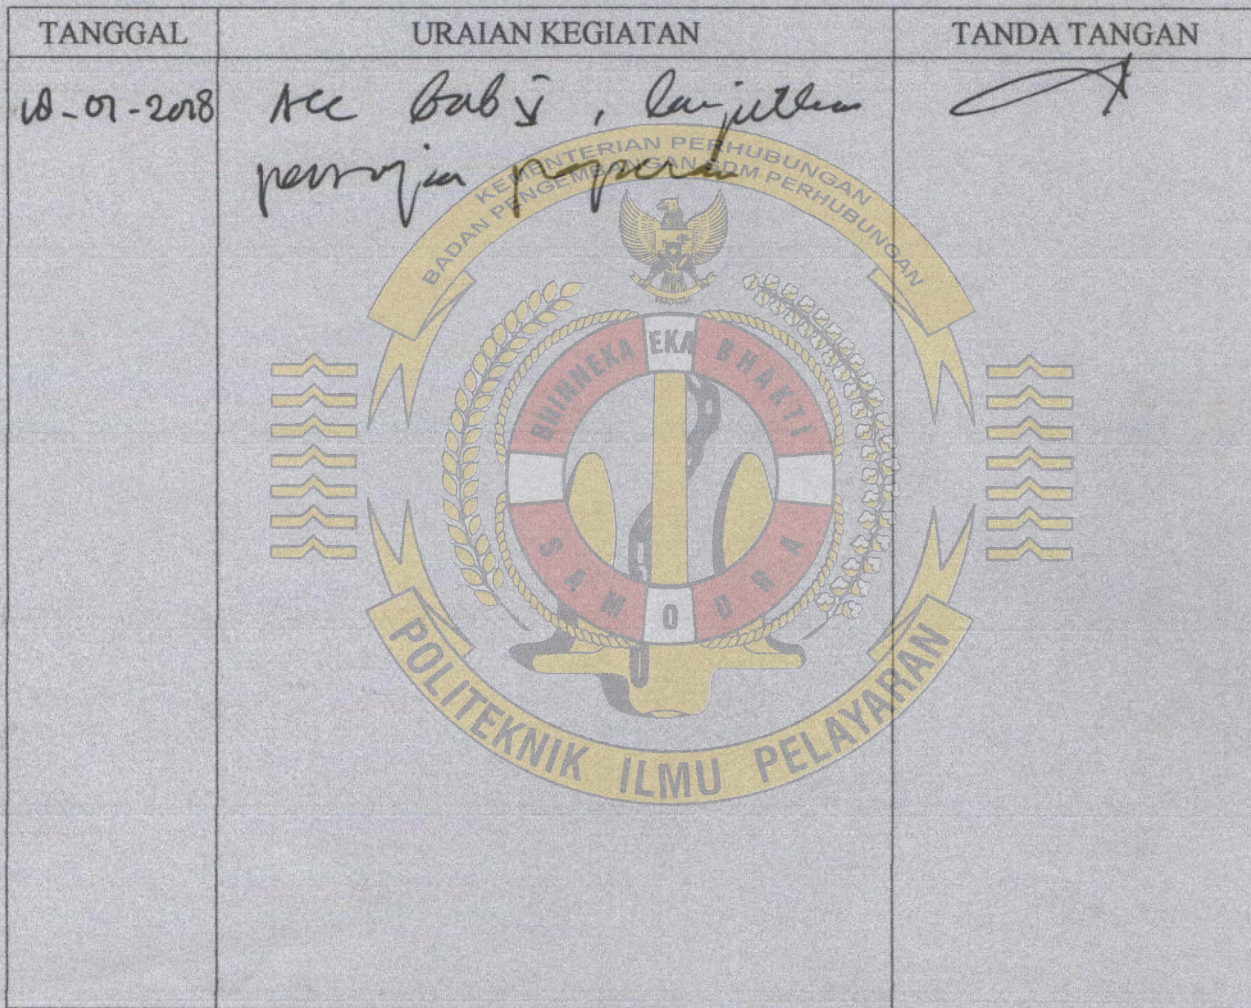 TANGGAL URAIAN KEGIATAN TANDA TANGAN
Acc bab V, lanjutkan
KEMENTERIAN PERHUBUNGAN
BADAN PENGEMBANGAN SDM PERHUBUNGAN
BHINNEKA EKA BHAKTI
SAMODRA
POLITEKNIK ILMU PELAYARAN